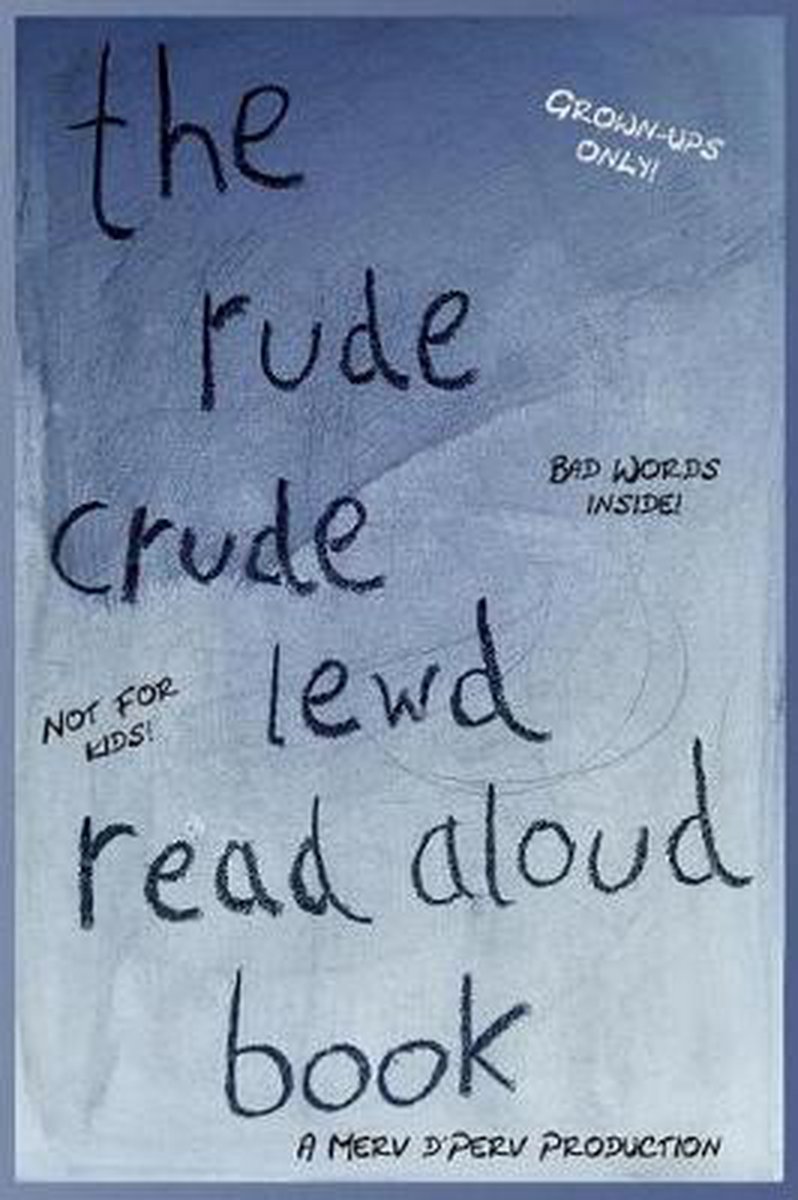 the
GROWN-UPS
ONLY!
rude
BAD WORDS
INSIDE!
crude
lewd
NOT FOR
KIDS!
read aloud
book
A MERV D'PERV PRODUCTION